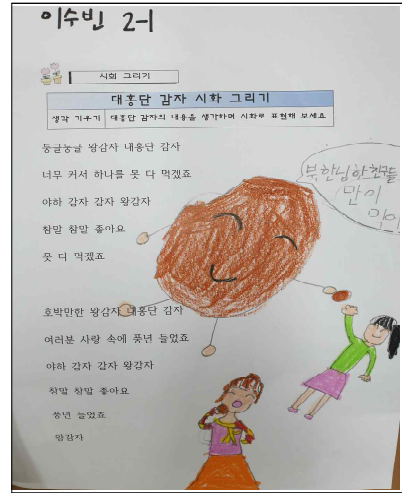 이수빈 2-1
시화 그리기
대홍단 감자 시화 그리기
생각 키우기 대홍단 감자의 내용을 생각하며 시화로 표현해 보세요
둥글둥글 왕감자 대홍단 감자
너무 커서 하나를 못 다 먹겠죠
야하 감자 감자 왕감자
참말 참말 좋아요
못 다 먹겠죠
호박만한 왕감자 대홍단 감자
여러분 사랑 속에 풍년 들었죠
야하 감자 감자 왕감자
참말 참말 좋아요
풍년 들었죠
왕감자
북한남한친구들
만이